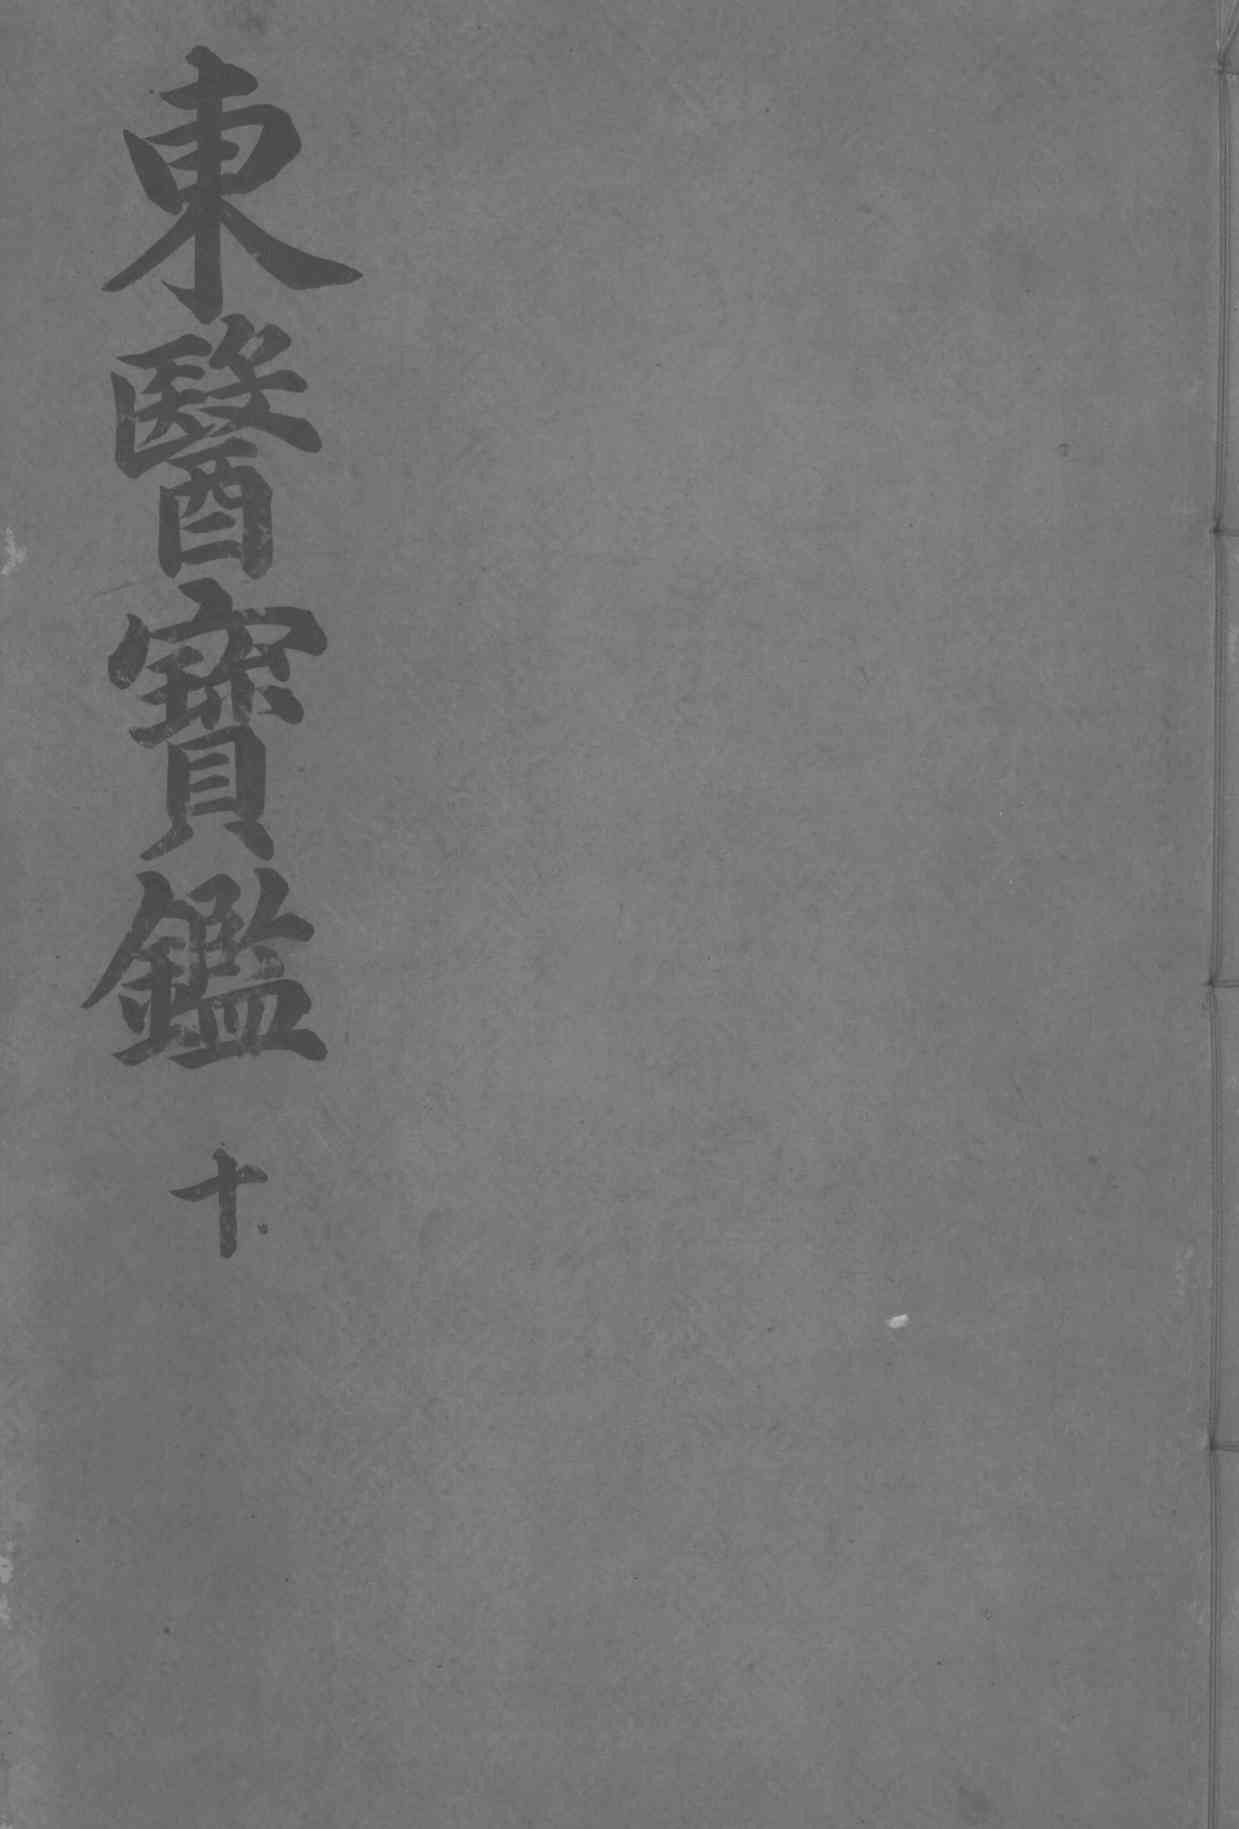 東醫寶鑑 十